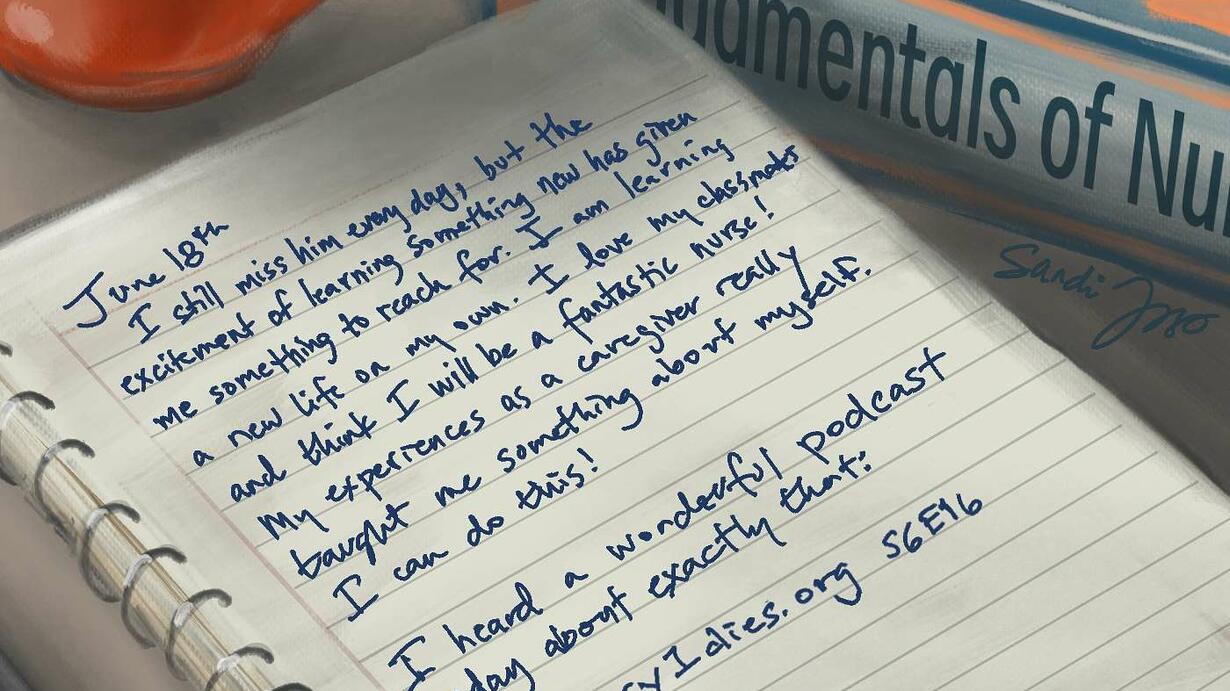 damentals of Nu
Sandi
June 18th
I still miss him every day, but the
excitement of learning something new has given
me something to reach for. I am learning
a new life on my own. I love my classmates
and think I will be a fantastic nurse!
My experiences as a caregiver really
taught me something about myself.
I can do this!
I heard a wonderful podcast
day about exactly that:
yIdies.org S6E46